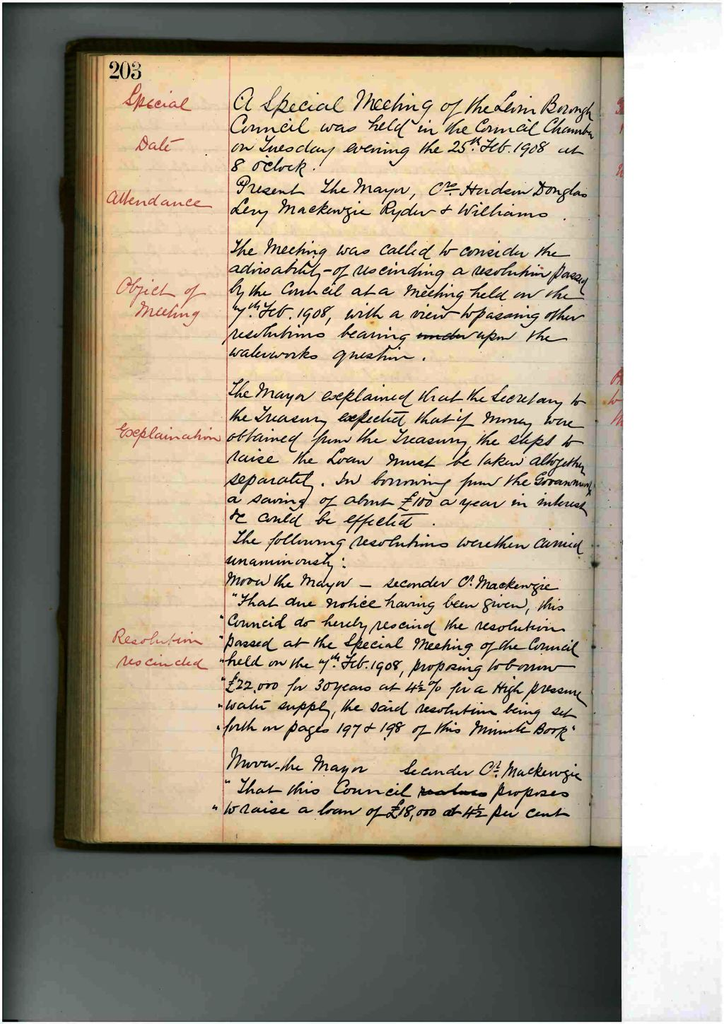 203
Special
A Special Meeting of the Levin Borough
Council was held in the Council Chamber
Date
on Tuesday evening the 25th Feb. 1908 at
8 o'clock.
Attendance
Present The Mayor, Crs Hudson Douglas
Levy Mackenzie Ryder & Williams.
The Meeting was called to consider the
advisability of rescinding a resolution passed
Object of
Meeting
by the Council at a Meeting held on the
7th Feb. 1908, with a view to passing other
resolutions bearing under upon the
waterworks question.
The Mayor explained that the Secretary to
the Treasury expected that if money were
Explaination
obtained from the Treasury the steps to
raise the Loan must be taken altogether
separately. In borrowing from the Government
a saving of about £100 a year in interest
&c could be effected.
The following resolutions were then carried
unaminously:
Mover the Mayor — seconder Cr Mackenzie
"That due notice having been given, this
"Council do hereby rescind the resolution
Resolution
rescinded
"passed at the Special Meeting of the Council
"held on the 7th Feb. 1908, proposing to borrow
"£22,000 for 30 years at 4½% for a High pressure
"water supply, the said resolution being set
"forth on pages 197 & 198 of this Minute Book"
Mover the Mayor Seconder Cr Mackenzie
"That this Council proposes
"to raise a loan of £18,000 at 4½ per cent